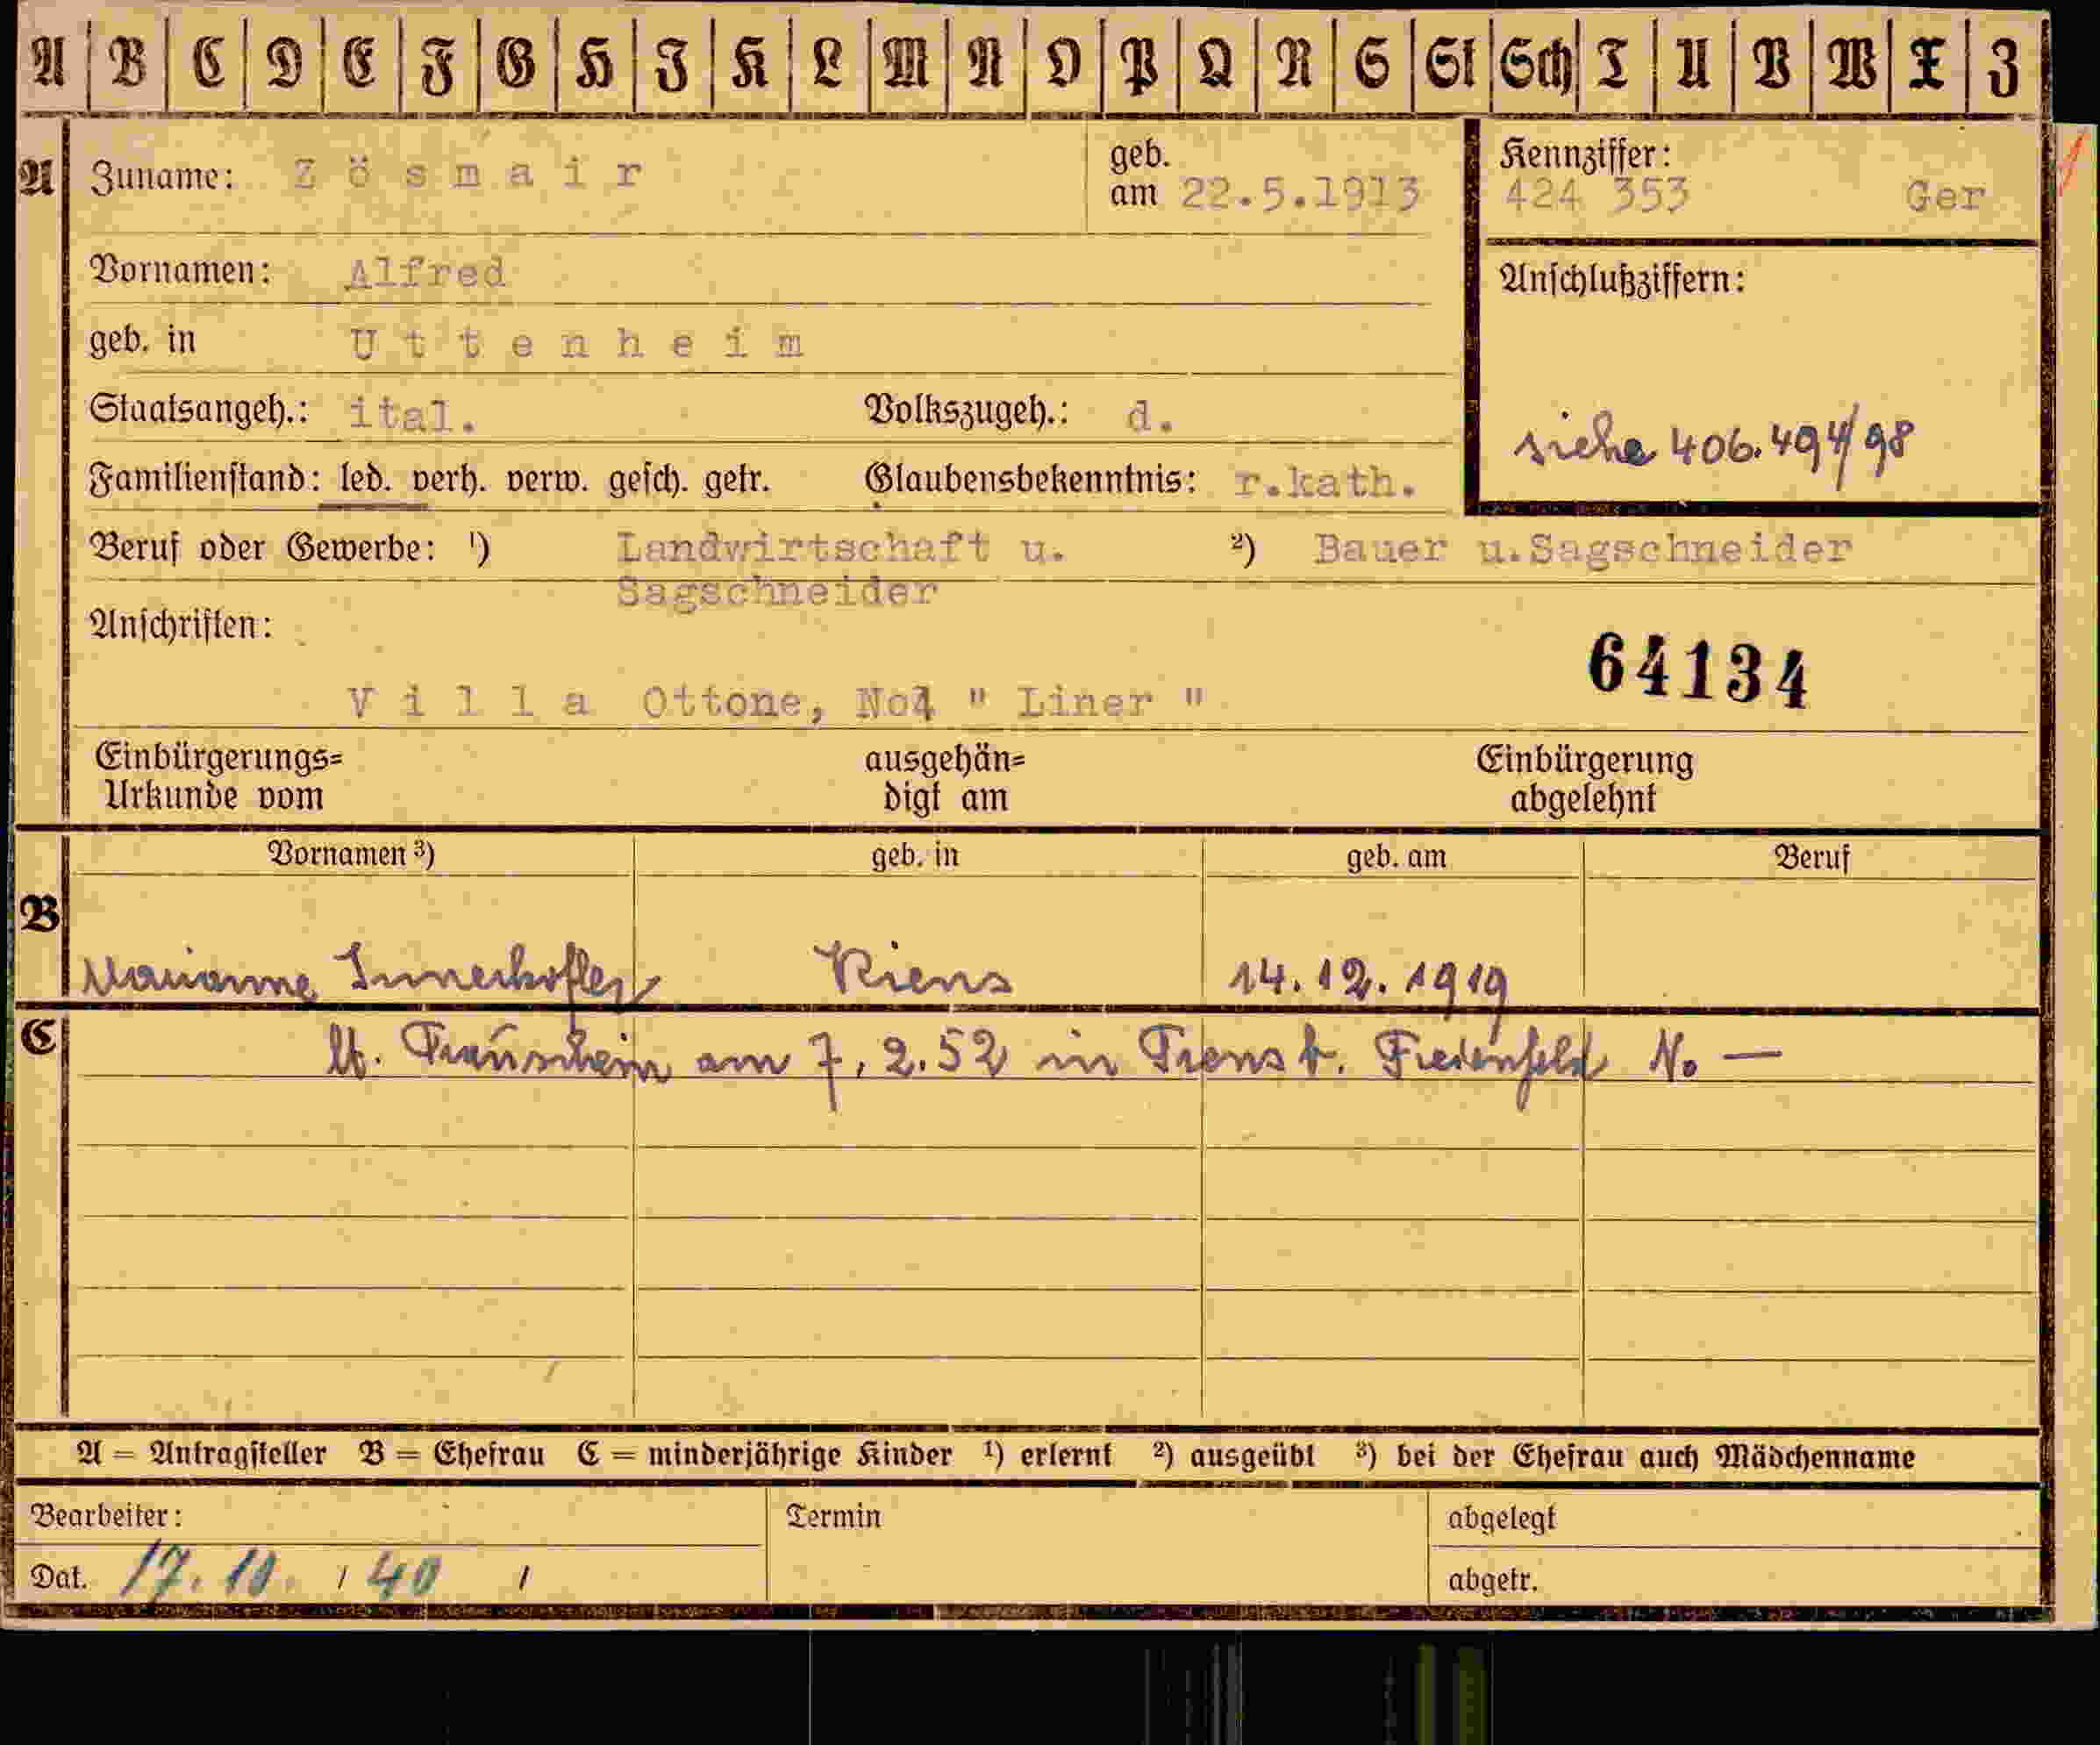 A B C D E F G H I K L M N O P Q R S St Sch T U V W X Z
A Zuname: Zösmair geb. am 22.5.1913 Kennziffer: 424 353 Ger
Vornamen: Alfred Anschlußziffern:
geb. in Uttenheim
Staatsangeh.: ital. Volkszugeh.: d. siehe 406.494/98
Familienstand: led. verh. verw. gesch. getr. Glaubensbekenntnis: r.kath.
Beruf oder Gewerbe: ¹) Landwirtschaft u. ²) Bauer u.Sagschneider
Sagschneider
Anschriften:
64134
Villa Ottone, No4 " Liner "
Einbürgerungs= ausgehän= Einbürgerung
Urkunde vom digt am abgelehnt
Vornamen ³) geb. in geb. am Beruf
B
Marianne Innerhofler Kiens 14.12.1919
C
lt. Trauschein am 7.2.52 in Trens b. Freienfeld No —
A = Antragsteller B = Ehefrau C = minderjährige Kinder ¹) erlernt ²) ausgeübt ³) bei der Ehefrau auch Mädchenname
Bearbeiter: Termin abgelegt
Dat. 17. 10. / 40 / abgetr.